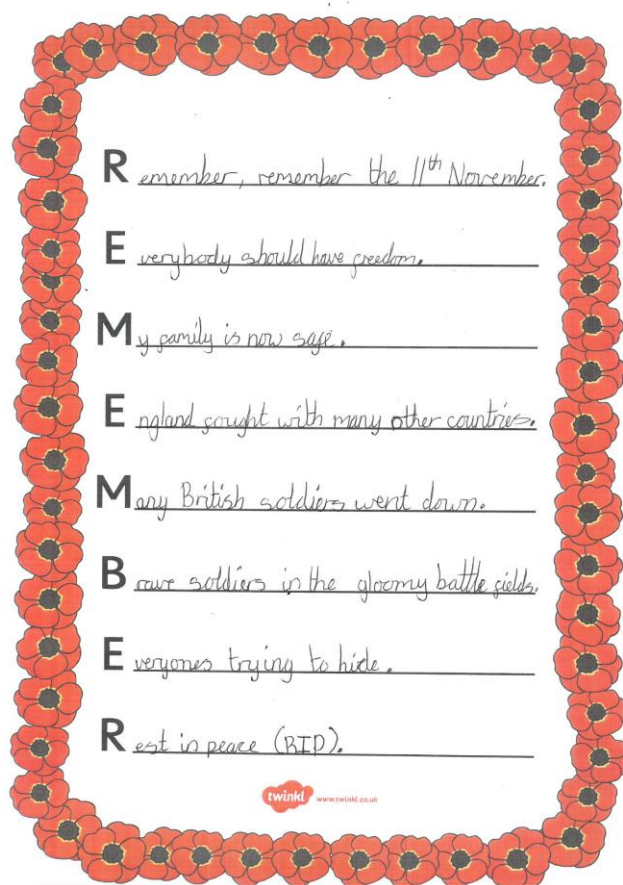 Remember, remember the 11th November.
Everybody should have freedom.
My family is now safe.
England fought with many other countries.
Many British soldiers went down.
Brave soldiers in the gloomy battle fields.
Everyones trying to hide.
Rest in peace (RIP).
twinkl www.twinkl.co.uk